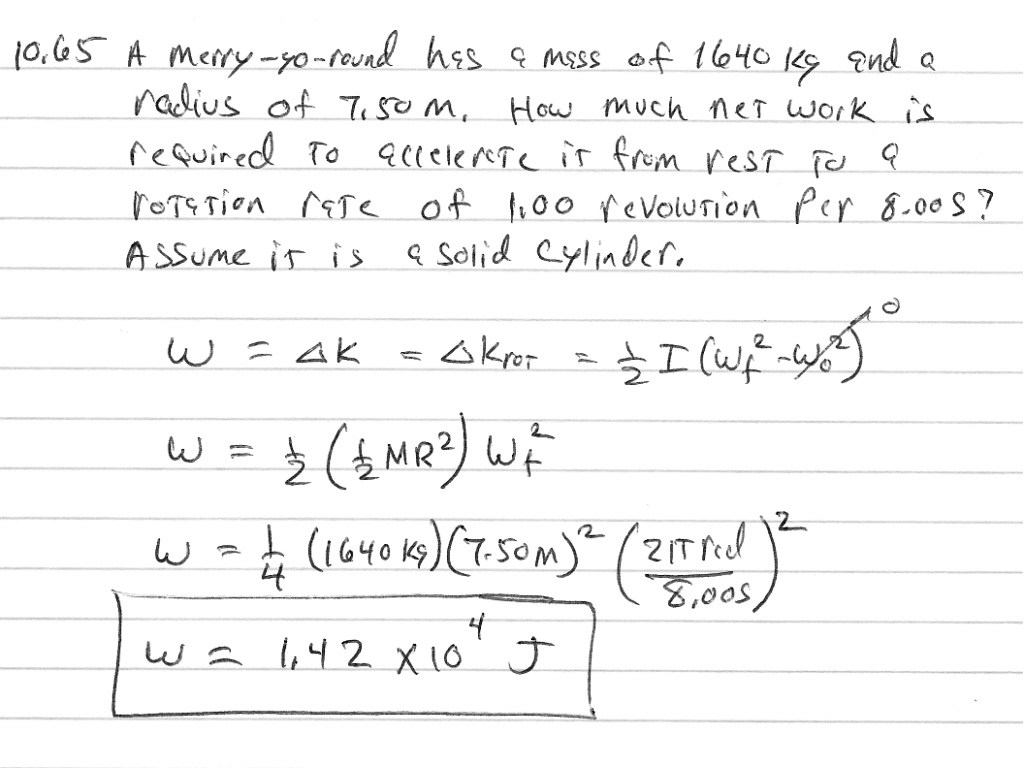 10.65 A merry-go-round has a mass of 1640 kg and a
radius of 7.50 m. How much net work is
required to accelerate it from rest to a
rotation rate of 1.00 revolution per 8.00 s?
Assume it is a solid cylinder.
W = ΔK = ΔKrot = 1/2 I (ωf² - ω0²) 0
W = 1/2 (1/2 MR²) ωf²
W = 1/4 (1640 kg)(7.50 m)² (2π rad / 8.00 s)²
W = 1.42 × 10⁴ J